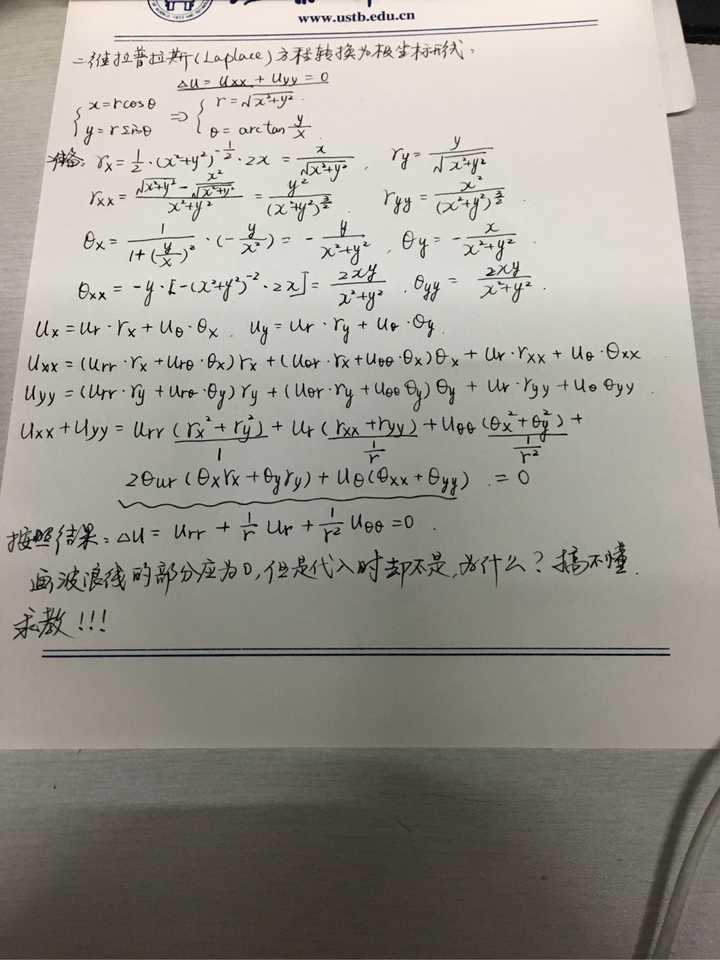 www.ustb.edu.cn
二维拉普拉斯(Laplace)方程转换为极坐标形式:
Δu = uxx + uyy = 0
{ x = rcosθ y = rsinθ ⇒ { r = √(x²+y²) θ = arctan y/x
准备: rx = 1/2·(x²+y²)^(-1/2)·2x = x/√(x²+y²), ry = y/√(x²+y²)
rxx = (√(x²+y²) - x²/√(x²+y²))/(x²+y²) = y²/(x²+y²)^(3/2) ryy = x²/(x²+y²)^(3/2)
θx = 1/(1+(y/x)²)·(-y/x²) = -y/(x²+y²), θy = -x/(x²+y²).
θxx = -y·[-(x²+y²)^(-2)·2x] = 2xy/(x²+y²), θyy = 2xy/(x²+y²).
ux = ur·rx + uθ·θx, uy = ur·ry + uθ·θy.
uxx = (urr·rx + urθ·θx)rx + (uθr·rx + uθθ·θx)θx + ur·rxx + uθ·θxx
uyy = (urr·ry + urθ·θy)ry + (uθr·ry + uθθ θy)θy + ur·ryy + uθ θyy
uxx + uyy = urr(rx² + ry²) + ur(rxx + ryy) + uθθ(θx² + θy²) +
1 1/r 1/r²
2θur(θxrx + θyry) + uθ(θxx + θyy) = 0
按照结果: Δu = urr + 1/r ur + 1/r² uθθ = 0.
画波浪线的部分应为0,但是代入时却不是,为什么?搞不懂.
求教!!!